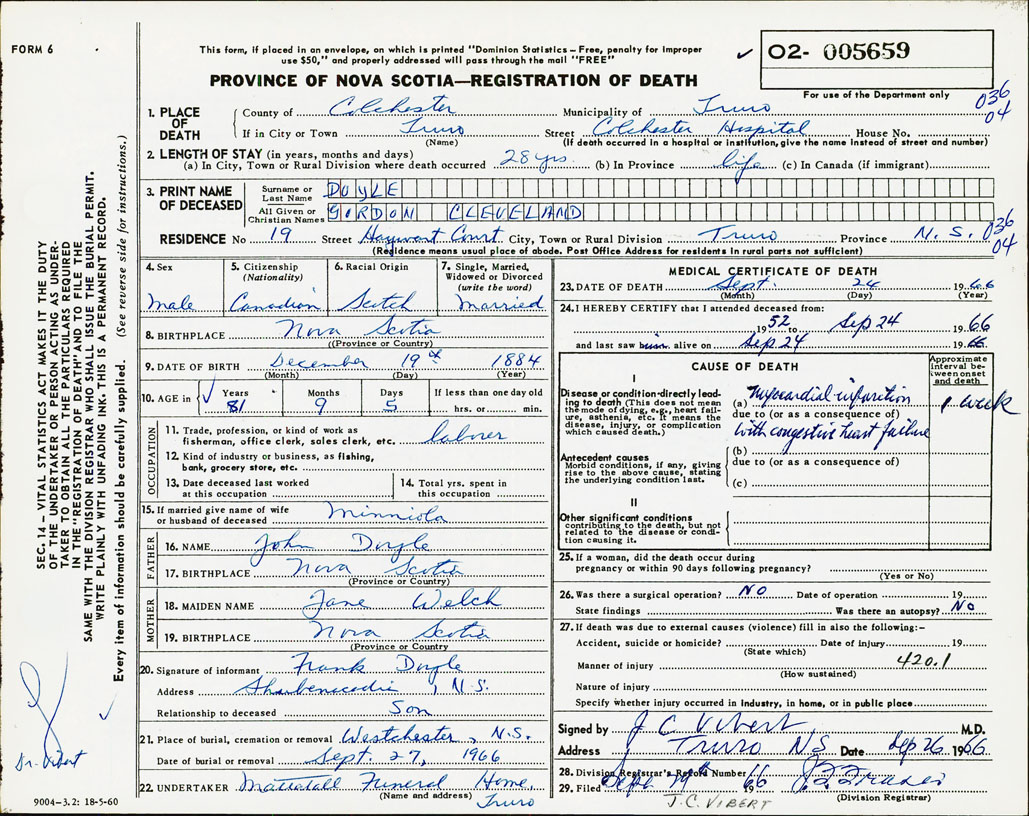 FORM 6
This form, if placed in an envelope, on which is printed "Dominion Statistics – Free, penalty for improper
use $50," and properly addressed will pass through the mail "FREE"
✓ O2- 005659
PROVINCE OF NOVA SCOTIA—REGISTRATION OF DEATH
For use of the Department only
036
04
1. PLACE OF DEATH
County of Colchester Municipality of Truro
If in City or Town Truro Street Colchester Hospital House No.
(Name) (If death occurred in a hospital or institution, give the name instead of street and number)
2. LENGTH OF STAY (in years, months and days)
(a) In City, Town or Rural Division where death occurred 28 yrs. (b) In Province life (c) In Canada (if immigrant)
3. PRINT NAME OF DECEASED
Surname or Last Name DOYLE
All Given or Christian Names GORDON CLEVELAND
RESIDENCE No 19 Street Court City, Town or Rural Division Truro Province N.S.
036
04
(Residence means usual place of abode. Post Office Address for residents in rural parts not sufficient)
4. Sex
Male
5. Citizenship
(Nationality)
Canadian
6. Racial Origin
Scotch
7. Single, Married,
Widowed or Divorced
(write the word)
Married
8. BIRTHPLACE Nova Scotia
(Province or Country)
9. DATE OF BIRTH December 19th 1884
(Month) (Day) (Year)
10. AGE in ✓ Years Months Days If less than one day old
81 9 5 hrs. or min.
OCCUPATION
11. Trade, profession, or kind of work as
fisherman, office clerk, sales clerk, etc. labourer
12. Kind of industry or business, as fishing,
bank, grocery store, etc.
13. Date deceased last worked
at this occupation
14. Total yrs. spent in
this occupation
15. If married give name of wife
or husband of deceased Minniola
FATHER
16. NAME John Doyle
17. BIRTHPLACE Nova Scotia
(Province or Country)
MOTHER
18. MAIDEN NAME Jane Welch
19. BIRTHPLACE Nova Scotia
(Province or Country
20. Signature of informant Frank Doyle
Address Shubenacadie, N.S.
Relationship to deceased Son
21. Place of burial, cremation or removal Westchester, N.S.
Date of burial or removal Sept. 27, 1966
22. UNDERTAKER Mattatall Funeral Home,
(Name and address) Truro
MEDICAL CERTIFICATE OF DEATH
23. DATE OF DEATH Sept. 24 1966
(Month) (Day) (Year)
24. I HEREBY CERTIFY that I attended deceased from:
1952 to Sep 24 1966
and last saw him alive on Sep 24 1966
CAUSE OF DEATH
Approximate
interval be-
tween onset
and death
I
Disease or condition directly lead-
ing to death (This does not mean
the mode of dying, e.g., heart fail-
ure, asthenia, etc. It means the
disease, injury, or complication
which caused death.)
(a) Myocardial infarction 1 week
due to (or as a consequence of)
with congestive heart failure
Antecedent causes
Morbid conditions, if any, giving
rise to the above cause, stating
the underlying condition last.
(b)
due to (or as a consequence of)
(c)
II
Other significant conditions
contributing to the death, but not
related to the disease or condi-
tion causing it.
25. If a woman, did the death occur during
pregnancy or within 90 days following pregnancy?
(Yes or No)
26. Was there a surgical operation? NO Date of operation 19
State findings Was there an autopsy? No
27. If death was due to external causes (violence) fill in also the following:–
Accident, suicide or homicide? Date of injury 19
(State which)
Manner of injury 420.1
(How sustained)
Nature of injury
Specify whether injury occurred in industry, in home, or in public place
Signed by J C Vibert M.D.
Address Truro N S Date Sep 26 1966
28. Division Registrar's Record Number
29. Filed Sept 1966
(Division Registrar)
J.C. VIBERT
SEC. 14 – VITAL STATISTICS ACT MAKES IT THE DUTY
OF THE UNDERTAKER OR PERSON ACTING AS UNDER-
TAKER TO OBTAIN ALL THE PARTICULARS REQUIRED
IN THE "REGISTRATION OF DEATH" AND TO FILE THE
SAME WITH THE DIVISION REGISTRAR WHO SHALL ISSUE THE BURIAL PERMIT.
WRITE PLAINLY WITH UNFADING INK. THIS IS A PERMANENT RECORD.
Every item of information should be carefully supplied. (See reverse side for instructions.)
✓
Dr. Vibert
9004–3.2: 18-5-60